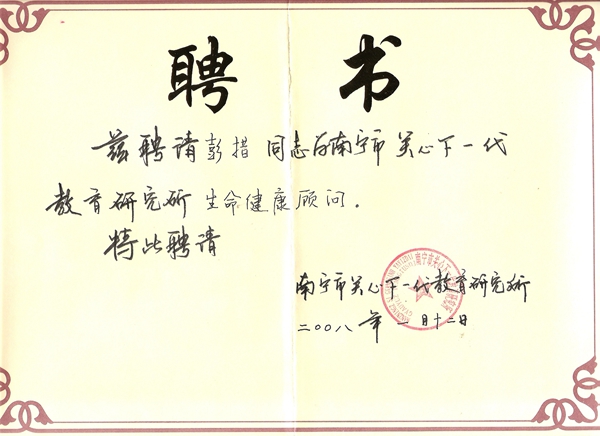 聘书
兹聘请彭措同志为南宁市关心下一代
教育研究所生命健康顾问.
特此聘请
南宁市关心下一代教育研究所
二00八年一月十二日